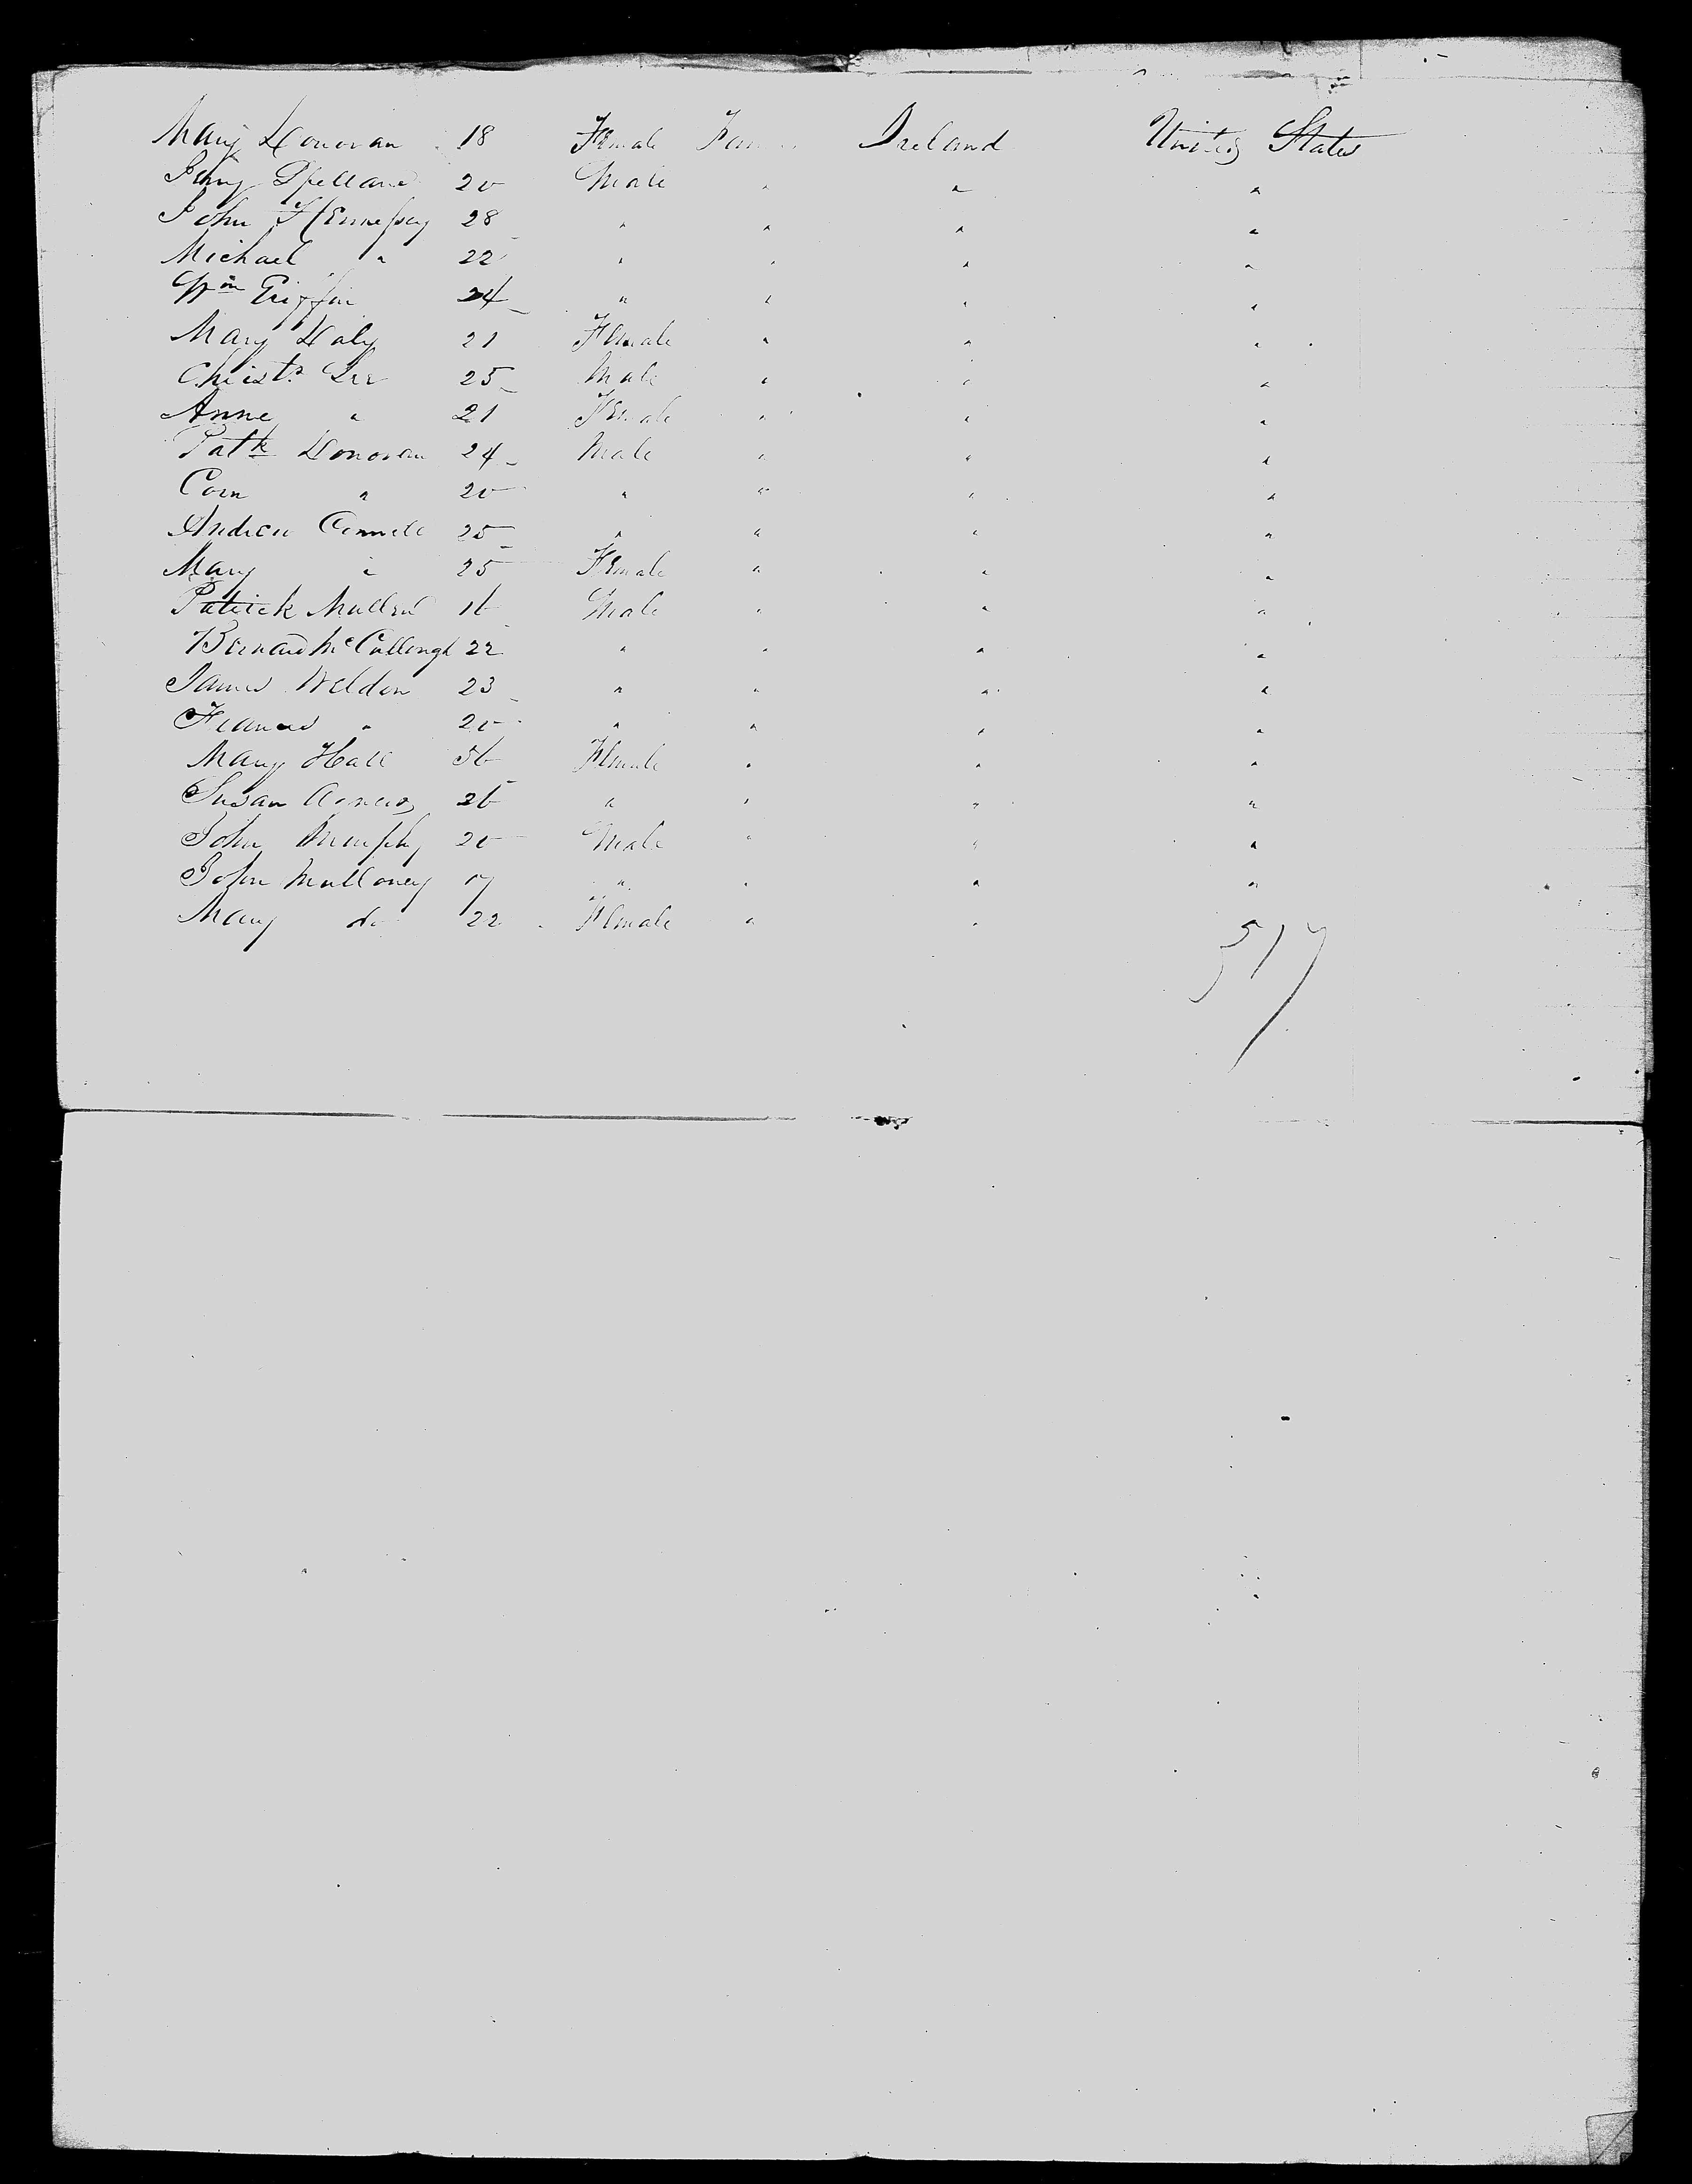 Mary Donovan 18 Female Ireland United States
Spellane 20 Male " " "
John Hennessy 28 " " " "
Michael " 22 " " " "
Wm Griffin 24 " " " "
Mary Daly 21 Female " " "
Christr Lee 25 Male " " "
Anne " 21 Female " " "
Patk Donovan 24 Male " " "
Corn " 20 " " " "
Andrew Connell 25 " " " "
Mary " 25 Female " " "
Patrick 16 Male " " "
Bernard McCullough 22 " " " "
James Weldon 23 " " " "
Francis " 20 " " " "
Mary Hall 56 Female " " "
Susan Agnew 26 " " " "
John Murphy 20 Male " " "
John Mulloney 17 " " " "
Mary do 22 Female " "
517